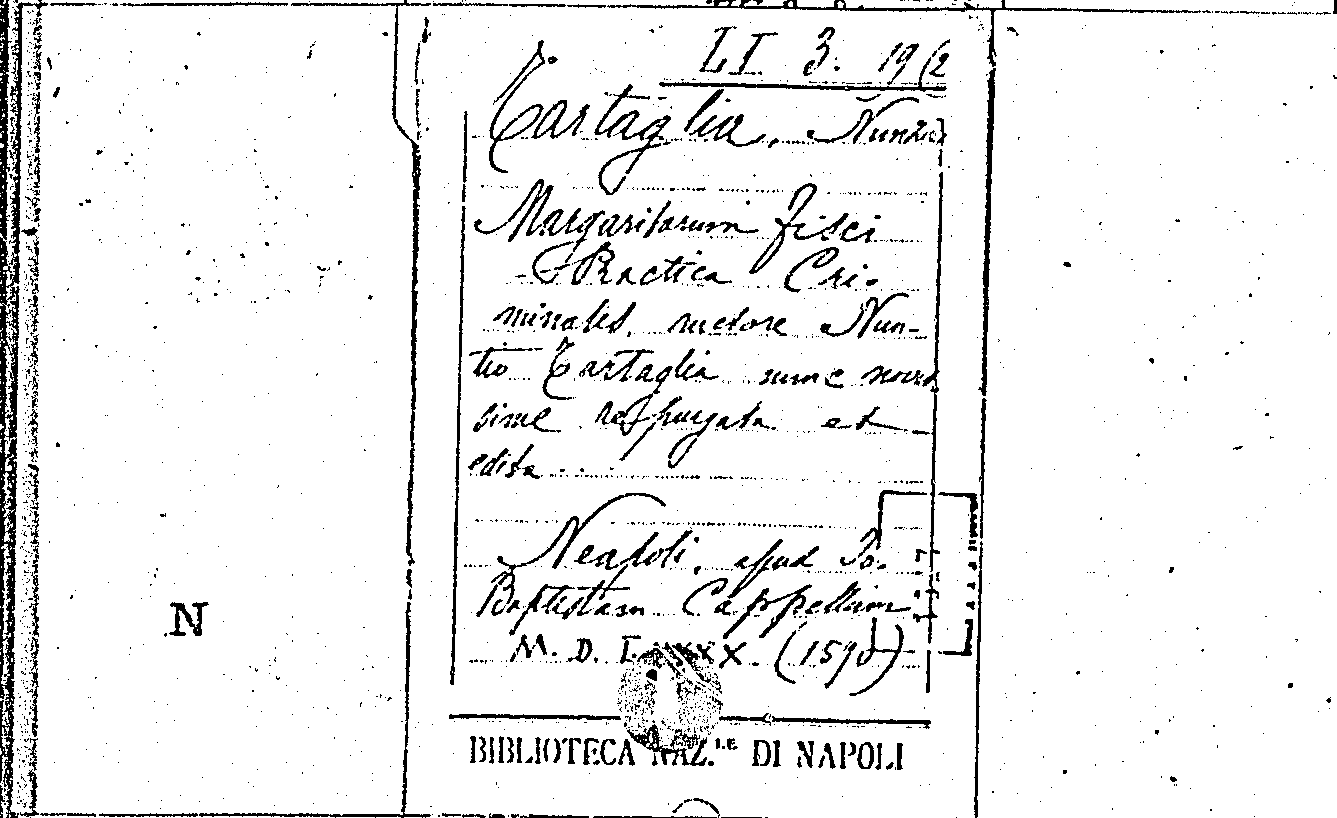 LI 3. 19 (2
Tartaglia, Nunzio
Margaritarum Fisci
Practica Cri-
minalis, auctore Nun-
tio Tartaglia nunc novis
sime repurgata et
edita ...
Neapoli, apud Io.
Baptistam Cappellum
M. D. L XXXX. (1590)
N
BIBLIOTECA NAZ.LE DI NAPOLI